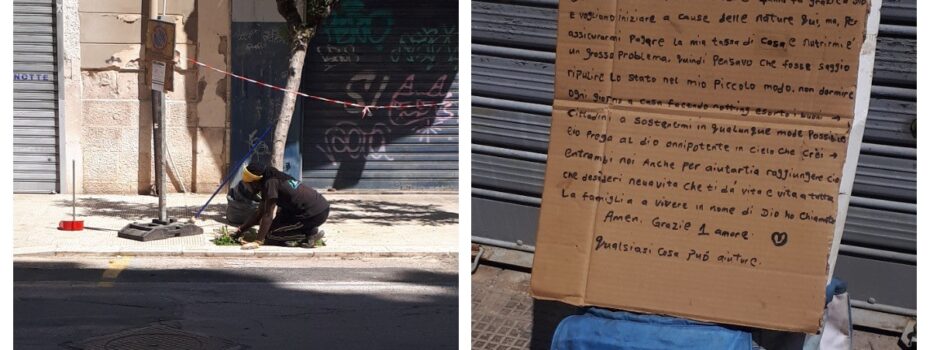 NOTTE
e vogliono iniziare a cause delle nature qui, ma, Per
assicurarmi Pagare La mia tassa di Casa e nutrirmi è
un grosso Problema, quindi Pensavo che fosse saggio
ripulire Lo Stato nel mio Piccolo modo, non dormire
Ogni giorno a casa facendo notting esorto i buoni →
Cittadini a sostenermi in qualunque mode Possibile
E io Prego al dio onnipotente in Cielo che Crei →
entrambi noi Anche per aiutartia raggiungere ciò
che desideri neva vita che ti da' vita e vita a tutta
La famiglia a vivere in nome di Dio ho Chiamato
Amen. Grazie 1 amore.
Qualsiasi Cosa può aiutare.